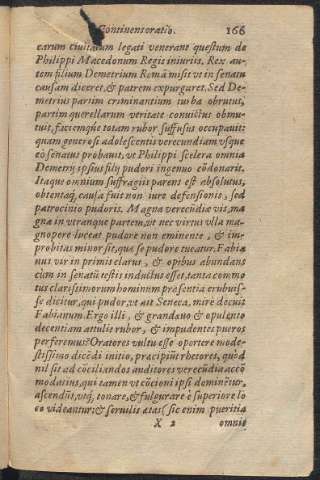 Continens oratio. 166
earum ciuitatum legati venerant questum de
Philippi Macedonum Regis iniuriis. Rex au-
tem filium Demetrium Romã misit vt in senatu
causam diceret, & patrem expurgaret. Sed De-
metrius partim criminantium turba obrutus,
partim querellarum veritate conuictus obmu-
tuit, faciemq́ue totam rubor suffusus occupauit:
quam generosi adolescentis verecundiam vsque
eò senatus probauit, vt Philippi scelera omnia
Demetrij ipsius filij pudori ingenuo cõdonarit.
Itaque omnium suffragiis parens est absolutus,
obtentaq́. causa fuit non iure defensionis, sed
patrocinio pudoris. Magna verecũdiæ vis, ma
gna in vtranque partem, vt nec virtus vlla ma-
gnopere luceat pudore non eminente, & im-
probitas minor sit, quæ se pudore tueatur. Fabia
nus vir in primis clarus, & opibus abundans
cùm in senatũ testis inductus esset, tanta commo
tus clarissimorum hominum præsentia erubuis-
se dicitur, qui pudor, vt ait Seneca, mirè docuit
Fabianum. Ergo illi, & grandæuo & opulento
decentiam attulit rubor, & impudentes pueros
perferemus? Oratores vultu esse oportere mode-
stissimo dicẽdi initio, præcipiũt rhetores, quòd
nil sit ad cõciliandos auditores verecũdia accõ
modatius, qui tamen vt cõcioni ipsi demin̄etur,
ascendũt, vtq́, tonare, & fulgurare è superiore lo
co videantur: & seruilis ætas (sic enim pueritia
X 2 omnis